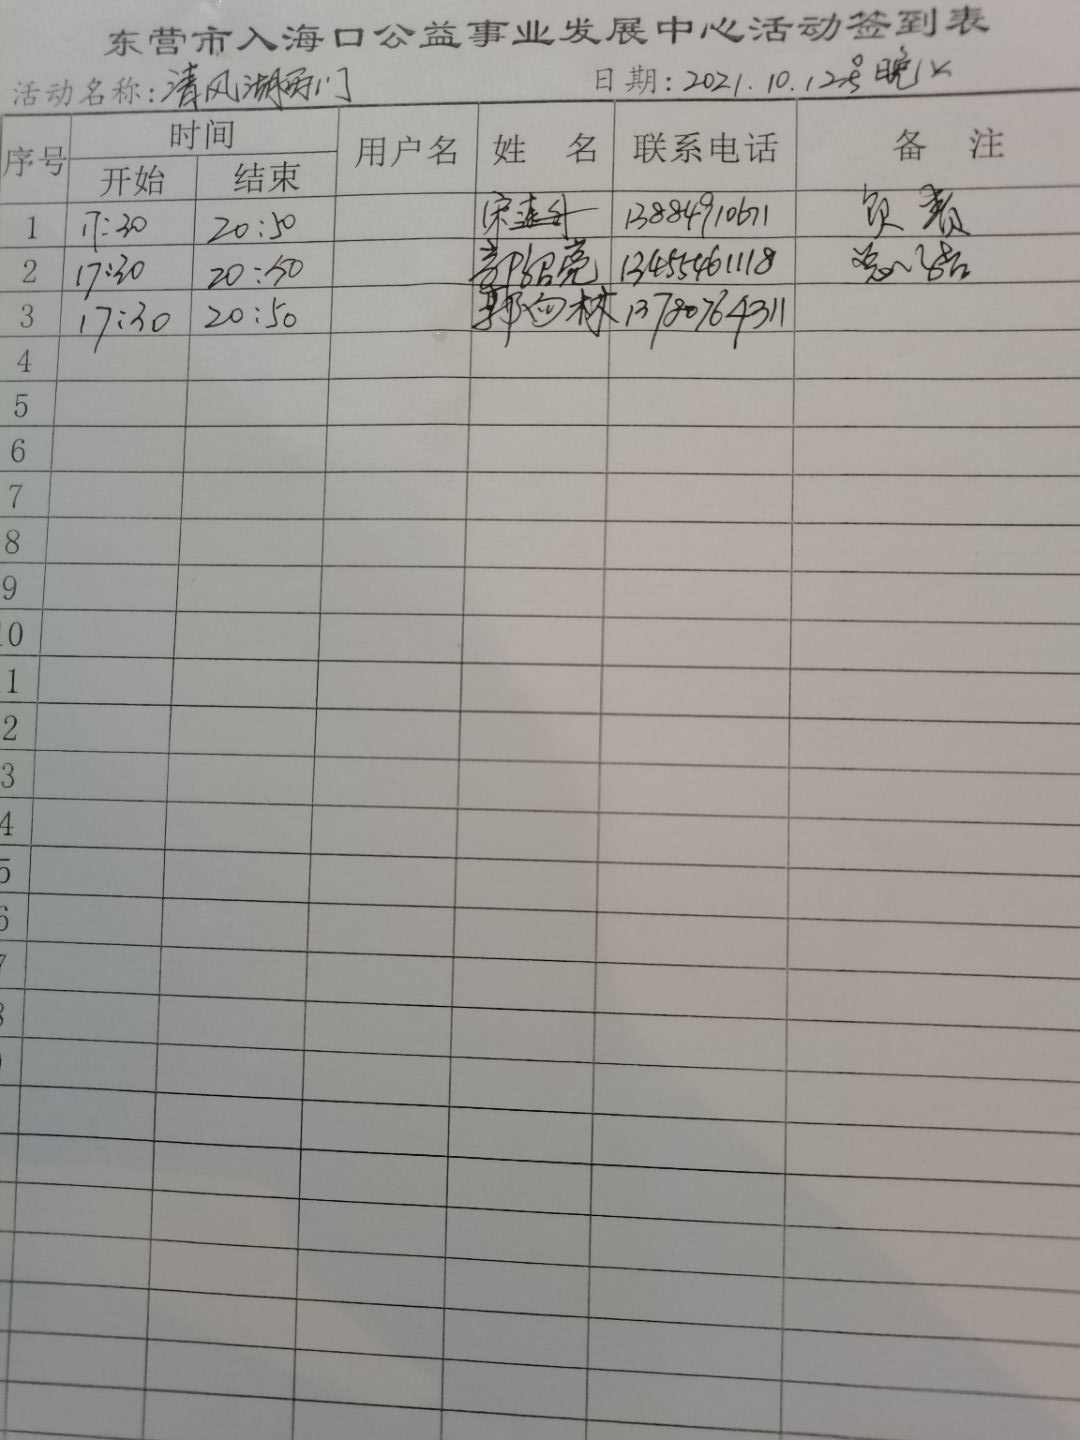 东营市入海口公益事业发展中心活动签到表
活动名称:清风湖西门 日期:2021.10.12号晚
序号 时间 用户名 姓 名 联系电话 备 注
开始 结束
1 17:30 20:50 宋连 13884910671 负责
2 17:30 20:50 亮 13455461118 总结
3 17:30 20:50 郭向林 13780764311
4
5
6
7
8
9
10
1
2
3
4
5
6
7
8